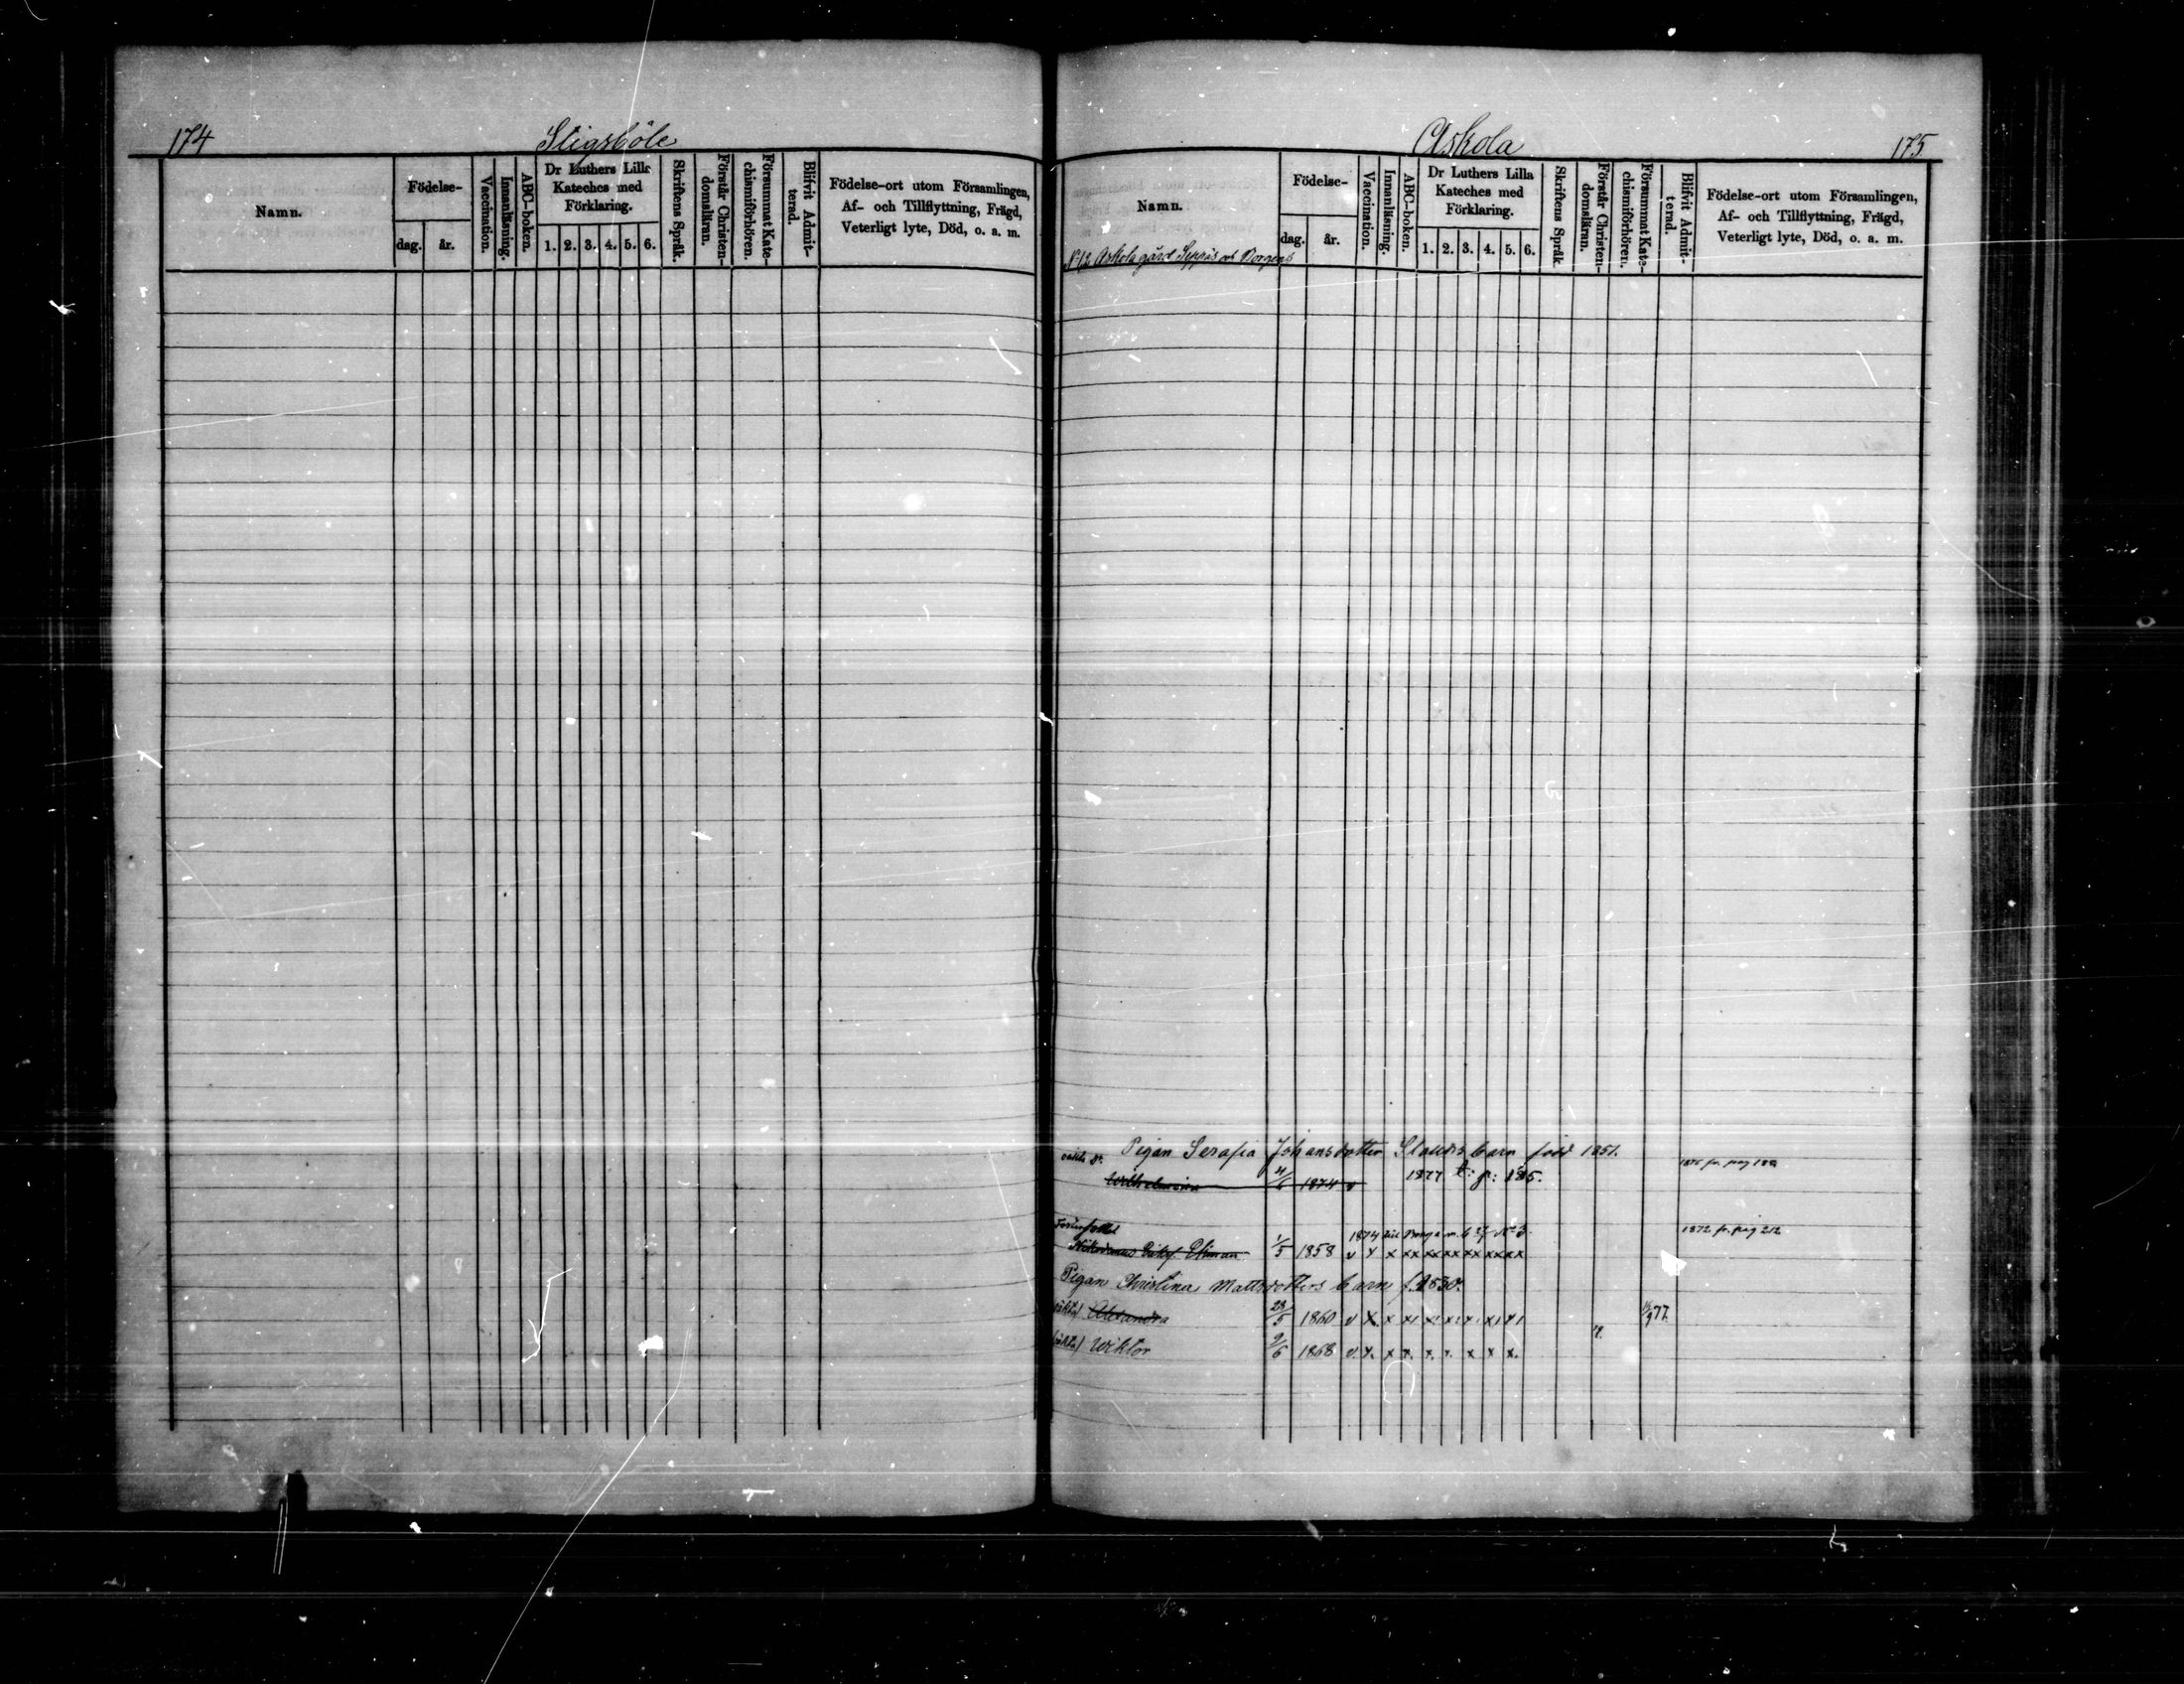 174
Stigsböle
Namn.
Födelse-
dag.
år.
Vaccination.
Innanläsning.
ABC-boken.
Dr Luthers Lilla
Kateches med
Förklaring.
1. 2. 3. 4. 5. 6.
Skriftens Språk.
Förstår Christen-
domsläran.
Försummat Kate-
chismiförhören.
Blifvit Admit-
terad.
Födelse-ort utom Församlingen,
Af- och Tillflyttning, Frägd,
Veterligt lyte, Död, o. a. m.
Askola
175
Namn.
Födelse-
dag.
år.
Vaccination.
Innanläsning.
ABC-boken.
Dr Luthers Lilla
Kateches med
Förklaring.
1. 2. 3. 4. 5. 6.
Skriftens Språk.
Förstår Christen-
domsläran.
Försummat Kate-
chismiförhören.
Blifvit Admit-
terad.
Födelse-ort utom Församlingen,
Af- och Tillflyttning, Frägd,
Veterligt lyte, Död, o. a. m.
Askola gård Seppäs och Borgens
Pigan Serafia Johansdotter barn född 1851.
Wilhelmina 4/6 1874 v 1877 t: p: 185.
1872 fr. pag 212
1/5 1858 v x x xx xx xx xx xx xx
Pigan Christina Mattsdotters barn f. 1830.
oäkta Alexandra 23/5 1860 v x x x1 x1 x1 x1 x1 x1 77.
oäkta Wiktor 9/6 1868 v. x. x x. x. x. x x x.